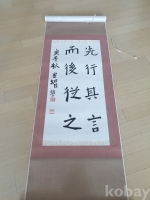 先行其言
而後從之
kobay